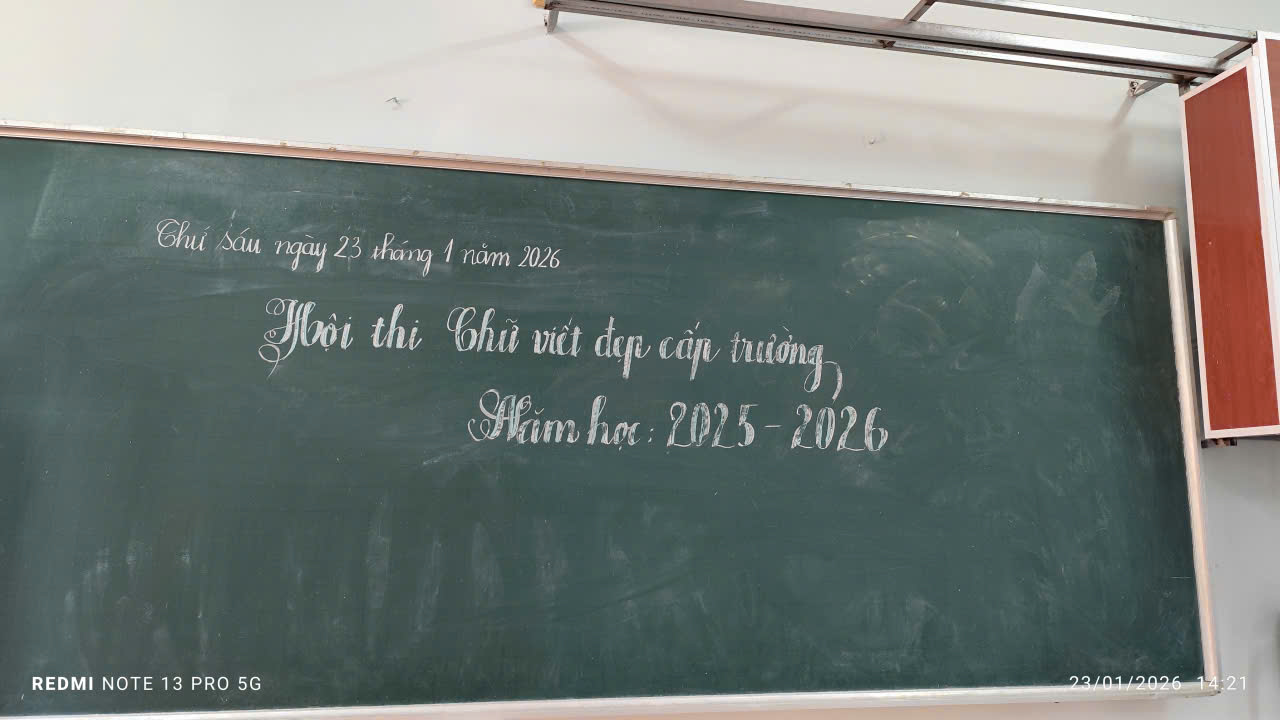 Thứ sáu ngày 23 tháng 1 năm 2026
Hội thi Chữ viết đẹp cấp trường
Năm học: 2025 - 2026
REDMI NOTE 13 PRO 5G
23/01/2026 14:21